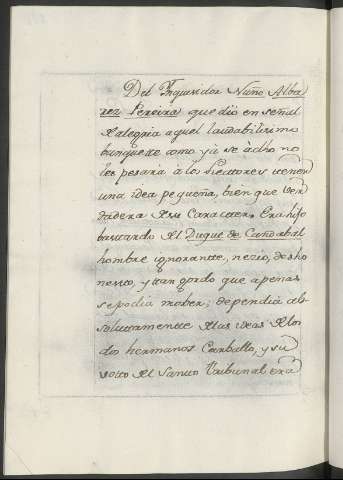 Del Inquisidor Nuño Alba
rez Pereira que dió en señal
de alegria aquel laudabilisimo
banquete como ya se à dho no
les pesara à los Lectores tener
una idea pequeña, bien que ver
dadera de su Caracter. Era hijo
bastardo del Duque de Cañdabal
hombre ignorantte, necio, desho
nesto, y tan gordo que apenas
se podia mober; dependia ab-
solutamentte de las ideas de los
dos hermanos Carballo, y su
votto del Santto Tribunal era